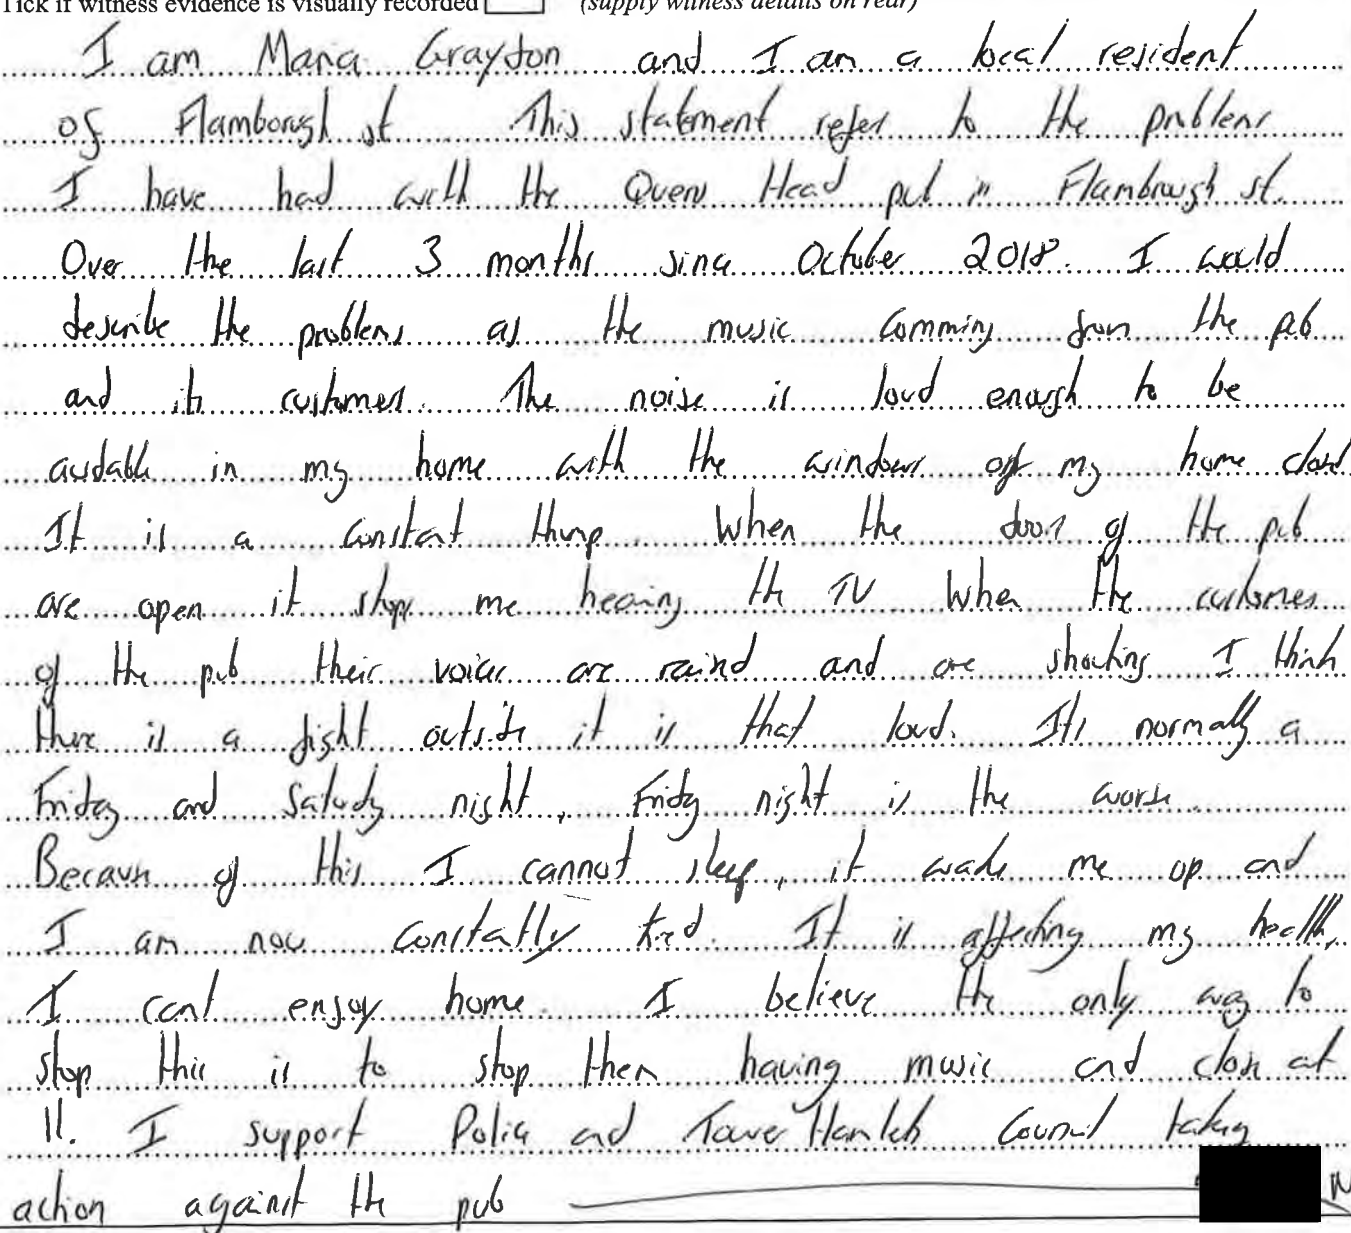 Tick if witness evidence is visually recorded (supply witness details on rear)
I am Maria Grayton and I am a local resident
of Flamborough st This statement refer to the problems
I have had with the Queen Head pub in Flambrough st.
Over the last 3 months since October 2018. I would
describe the problems as the music comming from the pub
and its customers. The noise is loud enough to be
audable in my home with the windows of my home closed
It is a constant thump. When the doors of the pub
are open it stops me hearing the TV When the customers
of the pub their voices are raised and are shouting I think
there is a fight outside it is that loud. Its normally a
Friday and Saturday night, Friday night is the worse.
Because of this I cannot sleep, it wakes me up and
I am now constatly tired. It is affecting my health,
I cant enjoy home. I believe the only way to
stop this is to stop them having music and close at
11. I support Police and Tower Hamlets Council taking
action against the pub